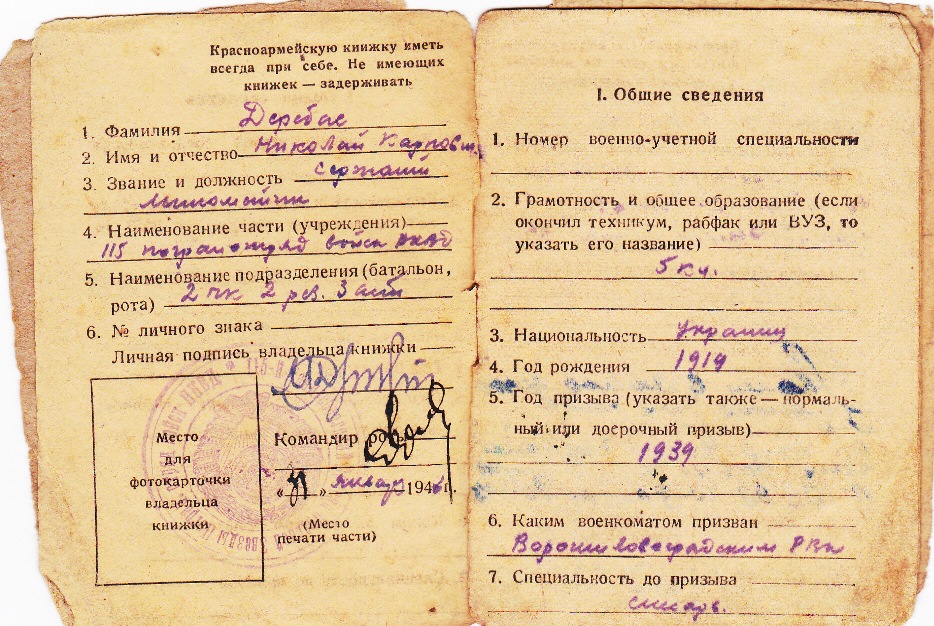 Красноармейскую книжку иметь
всегда при себе. Не имеющих
книжек — задерживать
1. Фамилия Деребас
2. Имя и отчество Николай Карпович
3. Звание и должность сержант
4. Наименование части (учреждения)
115 погранотряд войск НКВД
5. Наименование подразделения (батальон,
рота) 2 рез. 3
6. № личного знака
Личная подпись владельца книжки
Место
для
фотокарточки
владельца
книжки
Командир роты
« » январь 194 г.
(Место
печати части)
I. Общие сведения
1. Номер военно-учетной специальности
2. Грамотность и общее образование (если
окончил техникум, рабфак или ВУЗ, то
указать его название)
5 кл.
3. Национальность украинец
4. Год рождения 1919
5. Год призыва (указать также — нормаль-
ный или досрочный призыв)
1939
6. Каким военкоматом призван
Ворошиловоградским РВК
7. Специальность до призыва